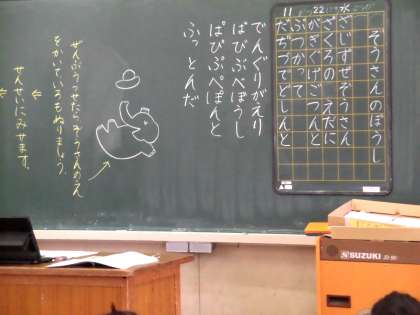 11 22 水
ぞうさんのぼうし
ざじずぜぞうさん
ざくろの えだに
がぎぐげごつんと
ぶつかって
だぢづでどしんと
でんぐりがえり
ばびぶべぼうし
ぱぴぷぺぽんと
ふっとんだ
ぜんぶうつせたら ぞうさんのえ
をかいていろもぬりましょう。
せんせいにみせます。
SUZUKI